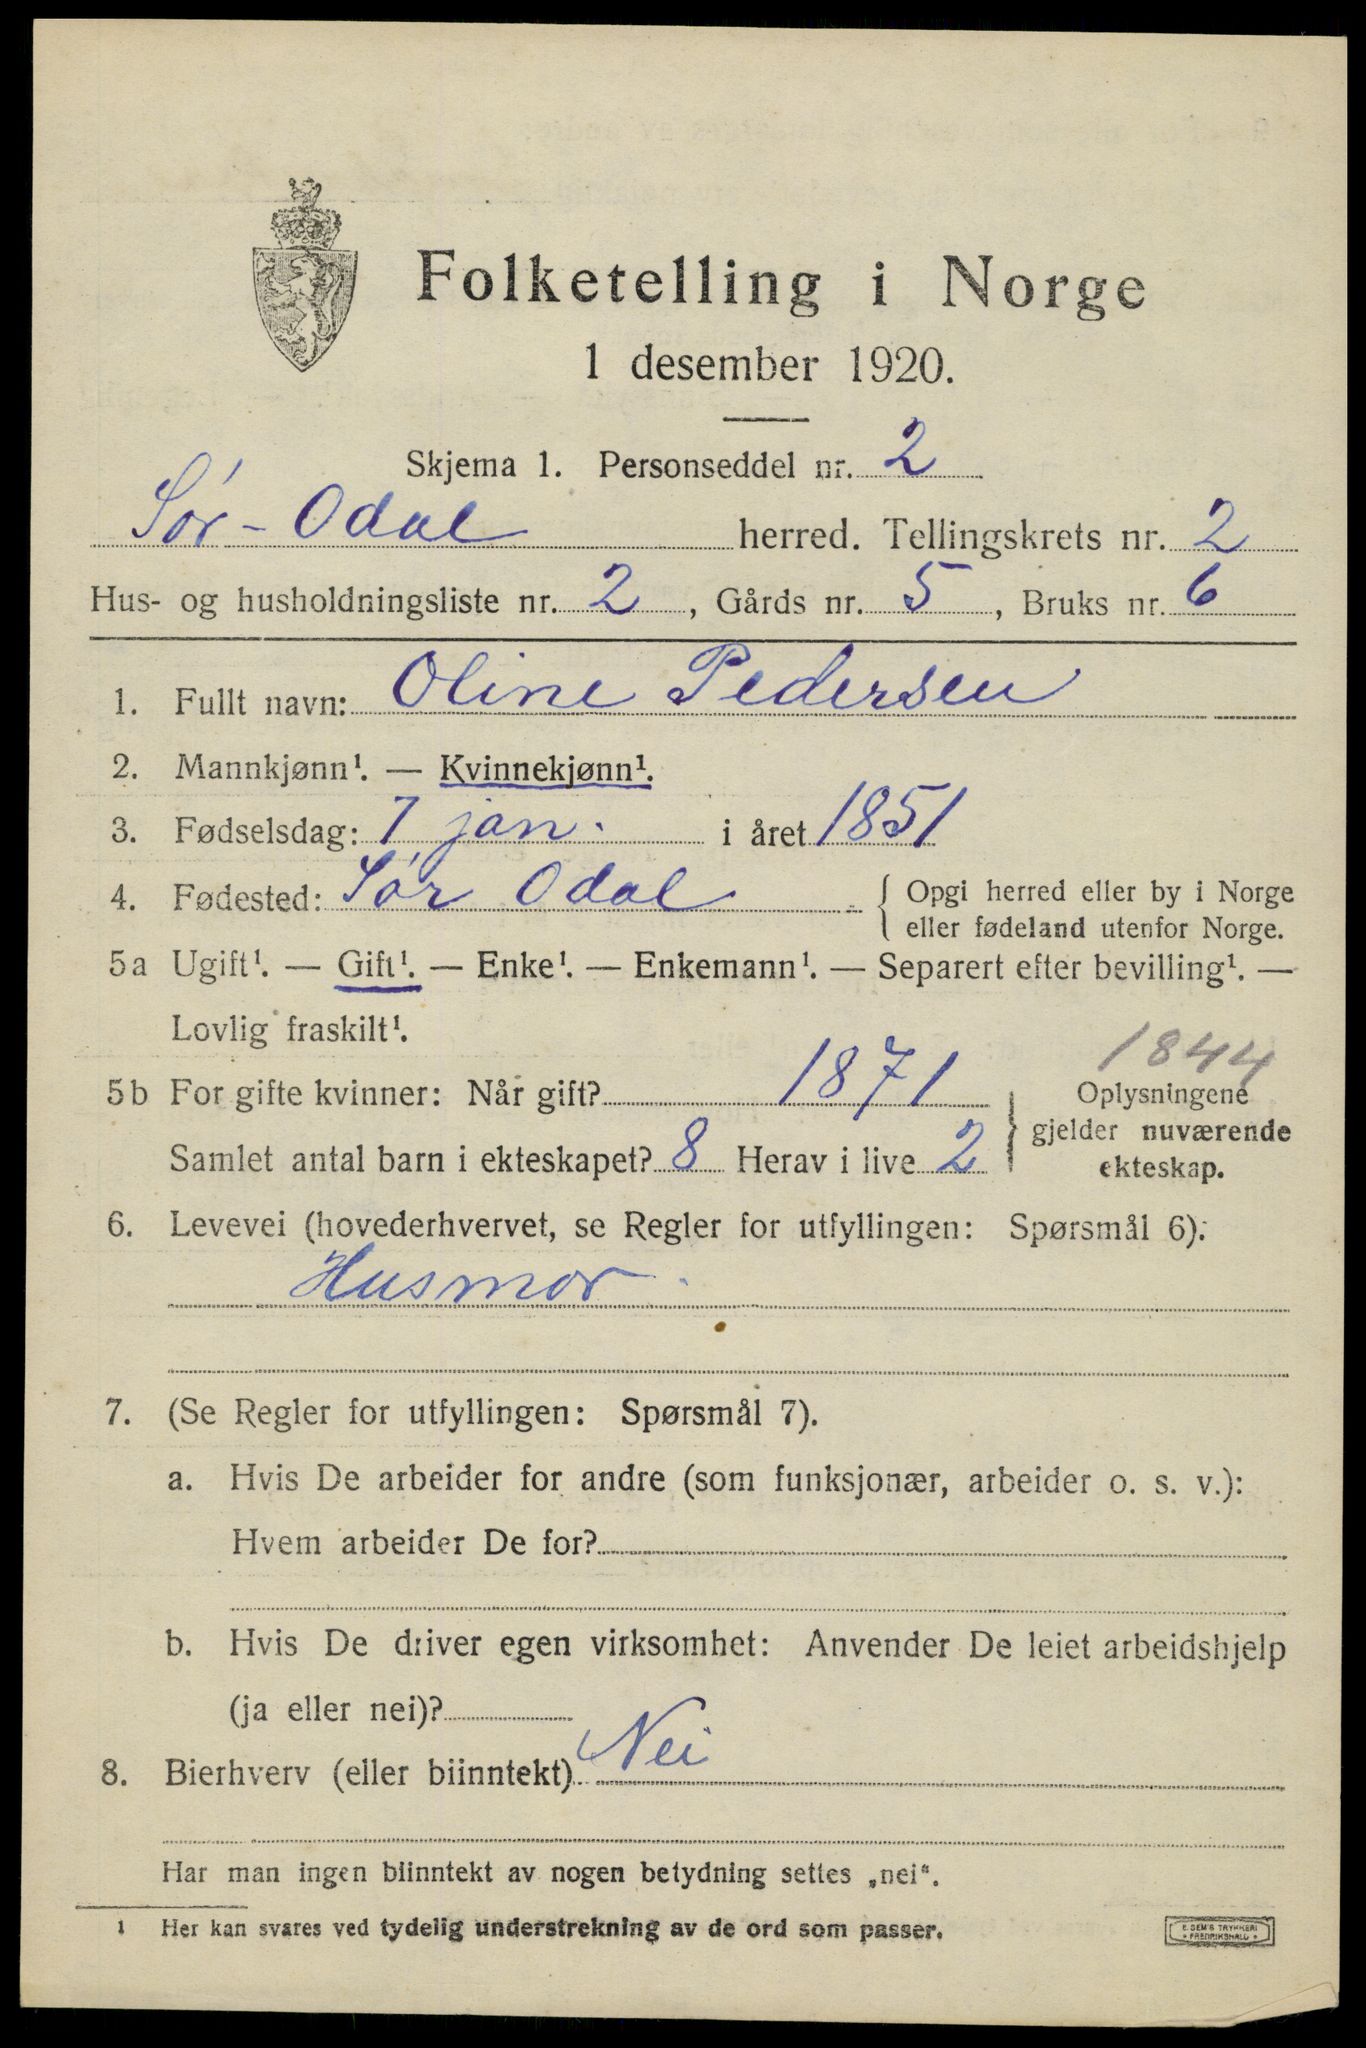 Folketelling i Norge
1 desember 1920.
Skjema 1. Personseddel nr. 2
Sør-Odal herred. Tellingskrets nr. 2
Hus- og husholdningsliste nr. 2, Gårds nr. 5, Bruks nr. 6
1. Fullt navn: Oline Pedersen
2. Mannkjønn¹. — Kvinnekjønn¹.
3. Fødselsdag: 7 jan. i året 1851
4. Fødested: Sør Odal { Opgi herred eller by i Norge
eller fødeland utenfor Norge.
5a Ugift¹. — Gift¹. — Enke¹. — Enkemann¹. — Separert efter bevilling¹. —
Lovlig fraskilt¹.
1844
5b For gifte kvinner: Når gift? 1871 } Oplysningene
gjelder nuværende
Samlet antal barn i ekteskapet? 8 Herav i live 2 ekteskap.
6. Levevei (hovederhvervet, se Regler for utfyllingen: Spørsmål 6):
Husmor
7. (Se Regler for utfyllingen: Spørsmål 7).
a. Hvis De arbeider for andre (som funksjonær, arbeider o. s. v.):
Hvem arbeider De for?
b. Hvis De driver egen virksomhet: Anvender De leiet arbeidshjelp
(ja eller nei)?
8. Bierhverv (eller biinntekt) Nei
Har man ingen biinntekt av nogen betydning settes „nei“.
1 Her kan svares ved tydelig understrekning av de ord som passer.
E. SEM'S TRYKKERI
FREDRIKSHALD